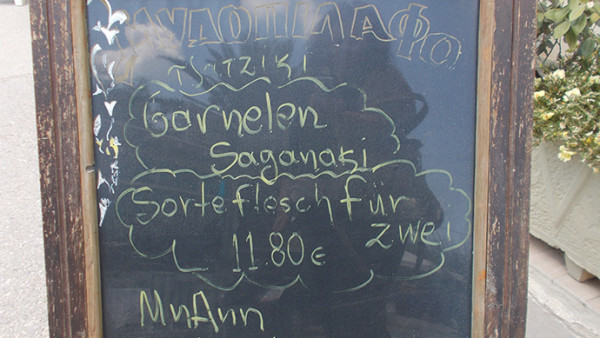 ΜΥΔΟΠΙΛΑΦΟ
TSATZIKI
Garnelen
Saganaki
Sorteflosch für
zwei
11.80 €
MnAnn